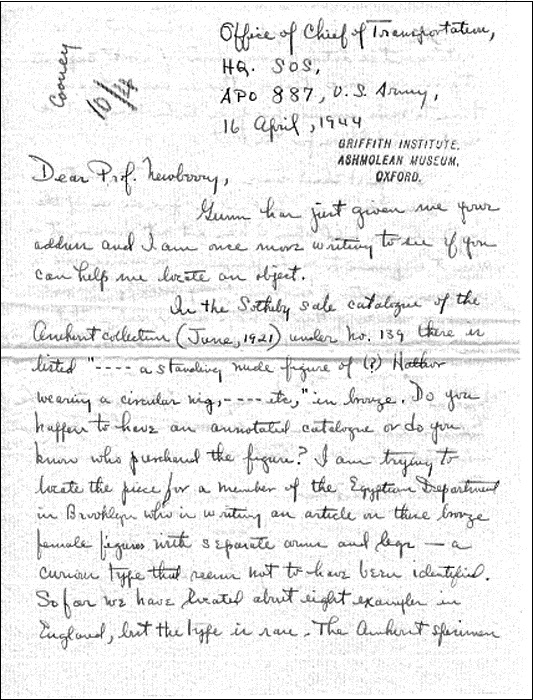 Cooney
10/4
Office of Chief of Transportation,
HQ. SOS,
APO 887, U.S. Army,
16 April, 1944
GRIFFITH INSTITUTE.
ASHMOLEAN MUSEUM,
OXFORD.
Dear Prof. Newberry,
Gunn has just given me your
address and I am once more writing to see if you
can help me locate an object.
In the Sotheby sale catalogue of the
Amherst collection (June, 1921) under no. 139 there is
listed "---- a standing nude figure of (?) Hathor
wearing a circular wig, ---- etc," in bronze. Do you
happen to have an annotated catalogue or do you
know who purchased the figure? I am trying to
locate the piece for a member of the Egyptian Department
in Brooklyn who is writing an article on these bronze
female figures with separate arms and legs — a
curious type that seems not to have been identified.
So far we have located about eight examples in
England, but the type is rare. The Amherst specimen